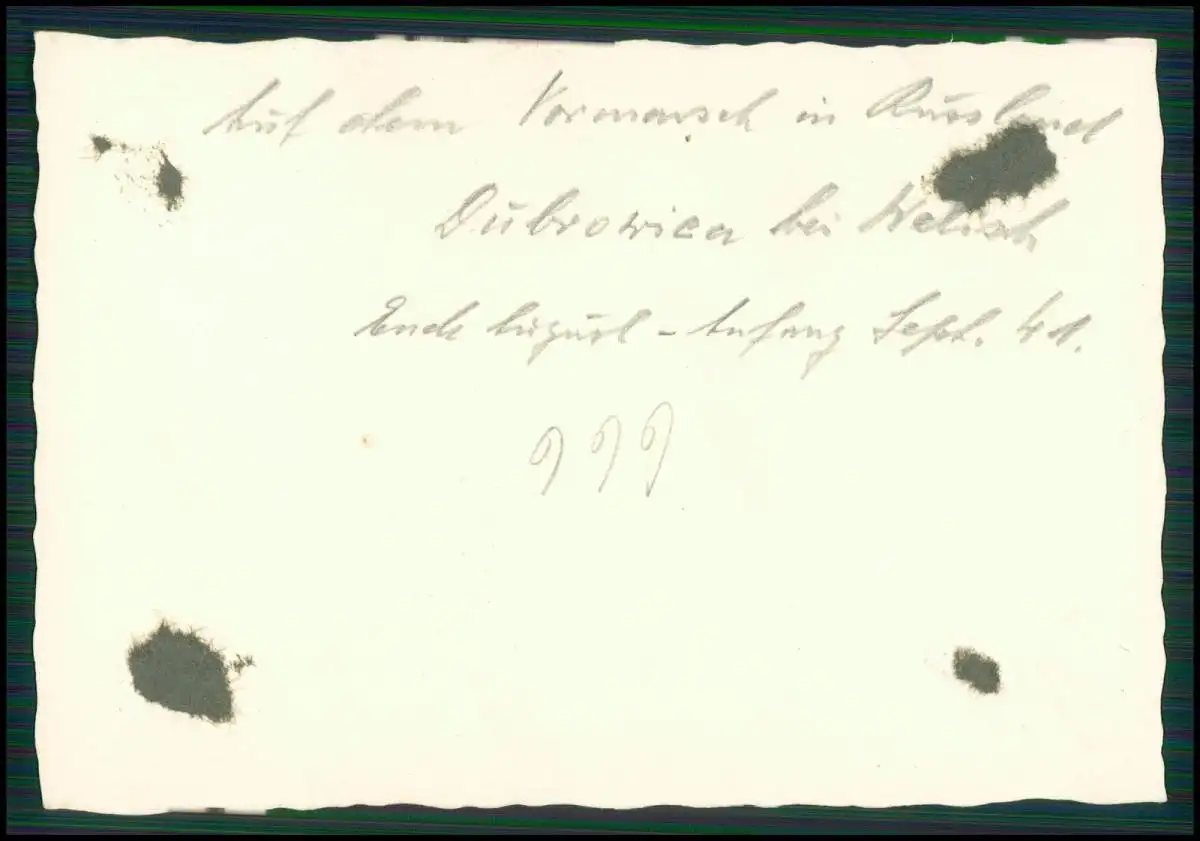 Auf dem Vormarsch in Russland
Dubrowica bei Welish
Ende August - Anfang Sept. 41.
999